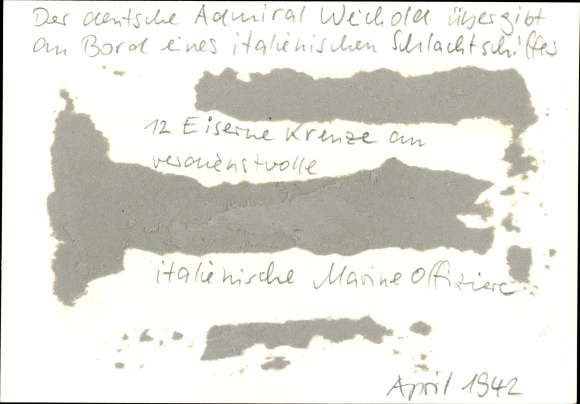 Der deutsche Admiral Weichold übergibt
an Bord eines italienischen Schlachtschiffes
12 Eiserne Kreuze an
verdienstvolle
italienische Marine Offiziere
April 1942